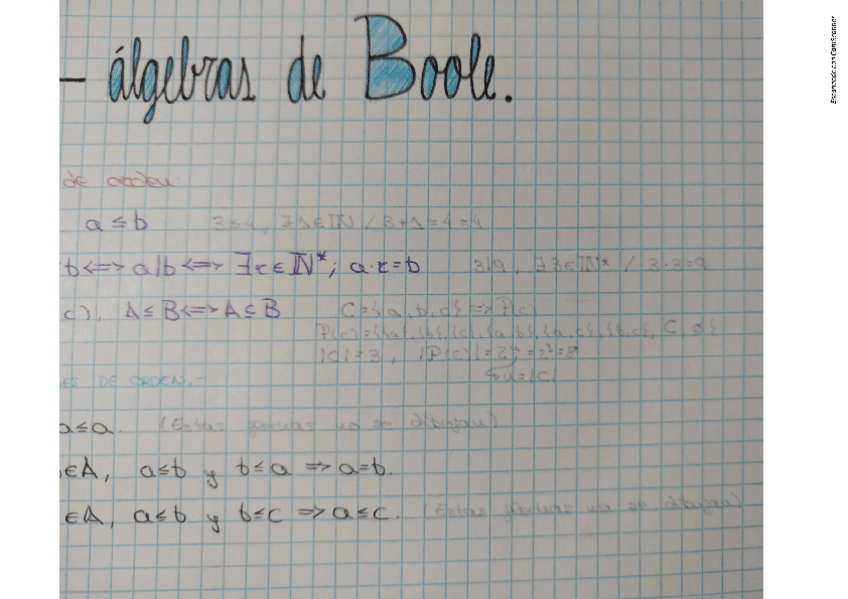 - álgebras de Boole.
de orden:
a ≤ b 3≤4, ∃1∈ℕ / 3+1=4=4
b <=> a|b <=> ∃x∈ℕ*; a·x=b 3|9, ∃3∈ℕ* / 3·3=9
c), A≤B <=> A⊆B C={a,b,c} => P(c)
P(c)={{a},{b},{c},{a,b},{a,c},{b,c}, C, ∅}
|C|=3, |P(c)|=2ⁿ=2³=8
n=|C|
ES DE ORDEN.-
a≤a. (Estas no se dibujan)
∈A, a≤b y b≤a => a=b.
∈A, a≤b y b≤c => a≤c. (Estas no se dibujan)
Escaneado con CamScanner